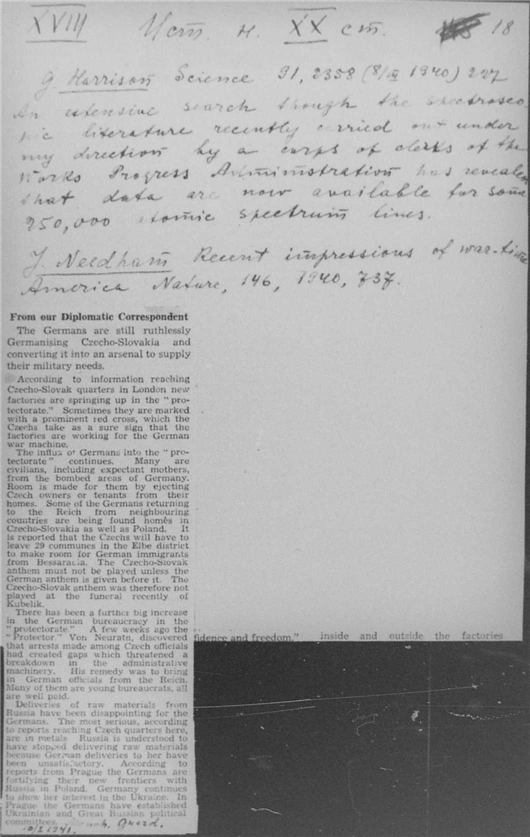 XVIII Ист. н. XX ст. 18
G. Harrison Science 91, 2358 (8/III 1940) 227
An extensive search though the spectrosco
pic literature recently carried out under
my direction by a corps of clerks of the
Works Progress Administration has revealed
that data are now available for some
250,000 atomic spectrum lines.
J. Needham Recent impressions of war-time
America Nature, 146, 1940, 737.
From our Diplomatic Correspondent
The Germans are still ruthlessly
Germanising Czecho-Slovakia and
converting it into an arsenal to supply
their military needs.
According to information reaching
Czecho-Slovak quarters in London new
factories are springing up in the "pro-
tectorate." Sometimes they are marked
with a prominent red cross, which the
Czechs take as a sure sign that the
factories are working for the German
war machine.
The influx of Germans into the "pro-
tectorate" continues. Many are
civilians, including expectant mothers,
from the bombed areas of Germany.
Room is made for them by ejecting
Czech owners or tenants from their
homes. Some of the Germans returning
to the Reich from neighbouring
countries are being found homes in
Czecho-Slovakia as well as Poland. It
is reported that the Czechs will have to
leave 29 communes in the Elbe district
to make room for German immigrants
from Bessarabia. The Czecho-Slovak
anthem must not be played unless the
German anthem is given before it. The
Czecho-Slovak anthem was therefore not
played at the funeral recently of
Kubelik.
There has been a further big increase
in the German bureaucracy in the
"protectorate." A few weeks ago the
"Protector," Von Neurath, discovered
that arrests made among Czech officials
had created gaps which threatened a
breakdown in the administrative
machinery. His remedy was to bring
in German officials from the Reich.
Many of them are young bureaucrats, all
are well paid.
Deliveries of raw materials from
Russia have been disappointing for the
Germans. The most serious, according
to reports reaching Czech quarters here,
are in metals Russia is understood to
have stopped delivering raw materials
because German deliveries to her have
been unsatisfactory. According to
reports from Prague the Germans are
fortifying their new frontiers with
Russia in Poland. Germany continues
to show her interest in the Ukraine. In
Prague the Germans have established
Ukrainian and Great Russian political
committees. Manch. Guard.
10/I 1941.
fidence and freedom." inside and outside the factories